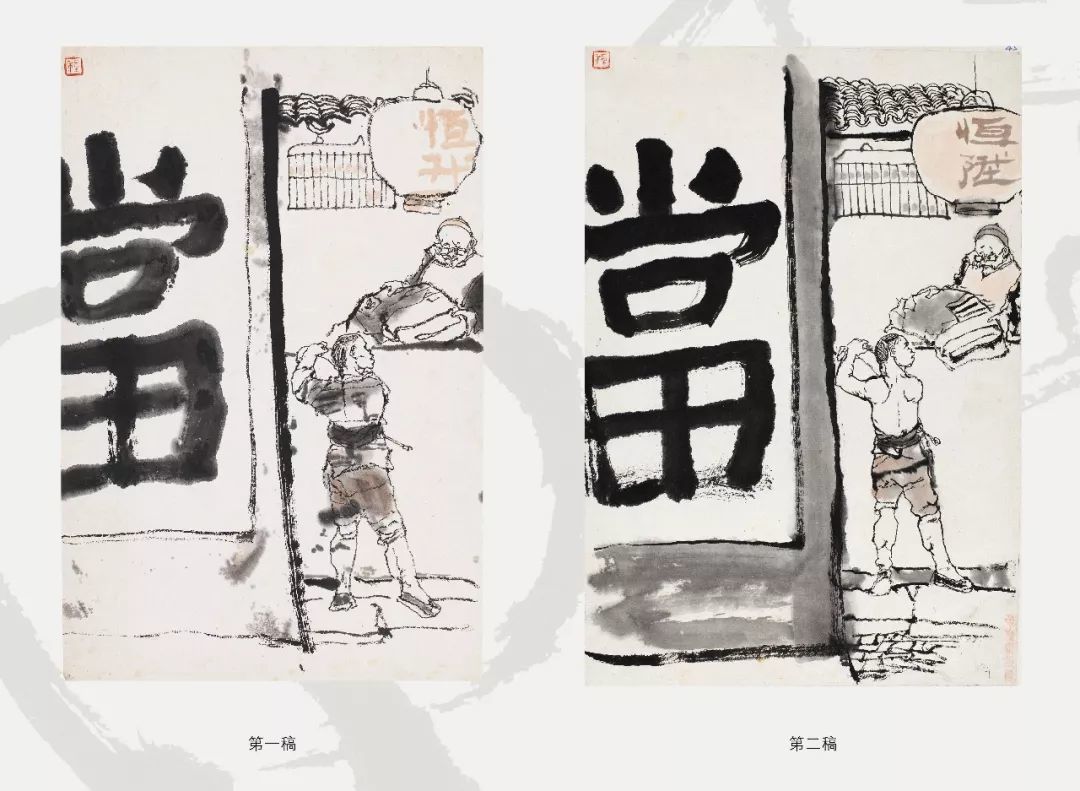 當
恆升
當
恆陞
第一稿
第二稿